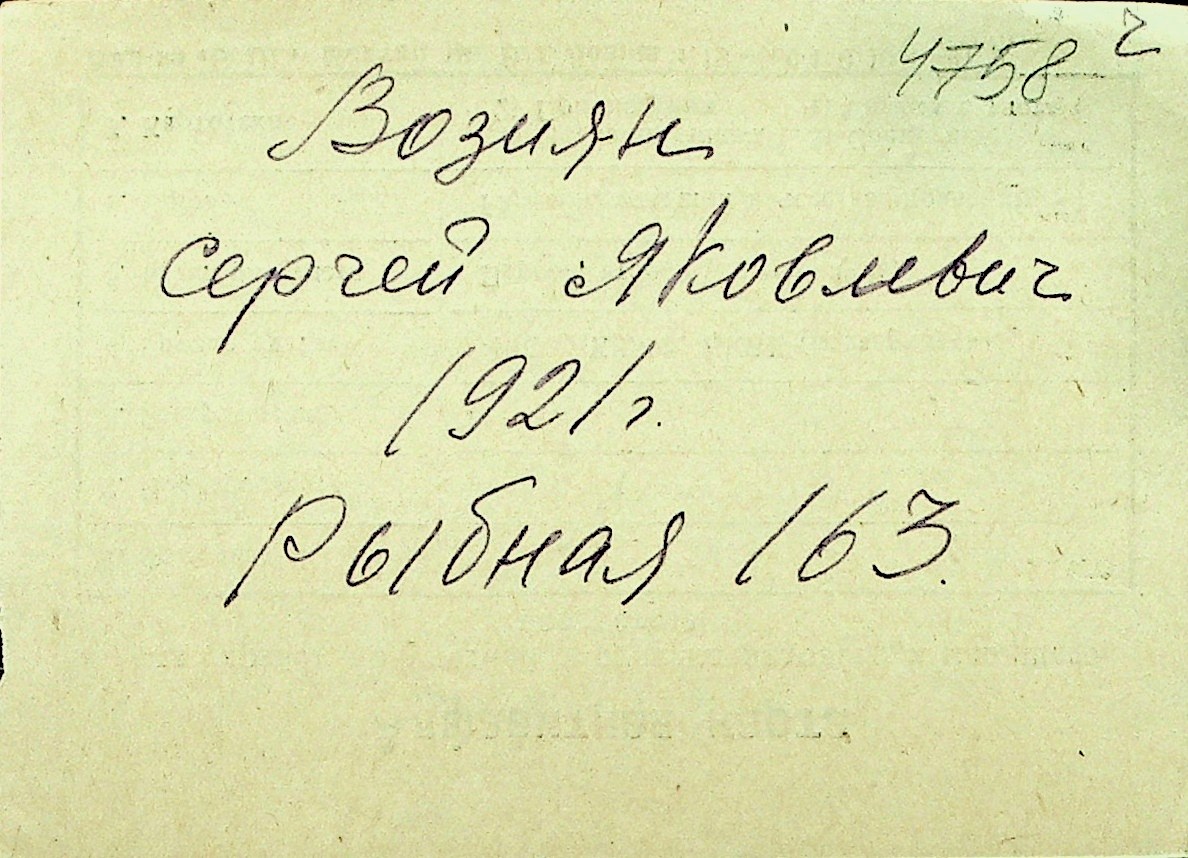 4758 ч
Возиян
Сергей Яковлевич
1921 г.
Рыбная 163.